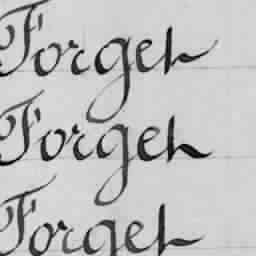 Forget
Forget
Forget